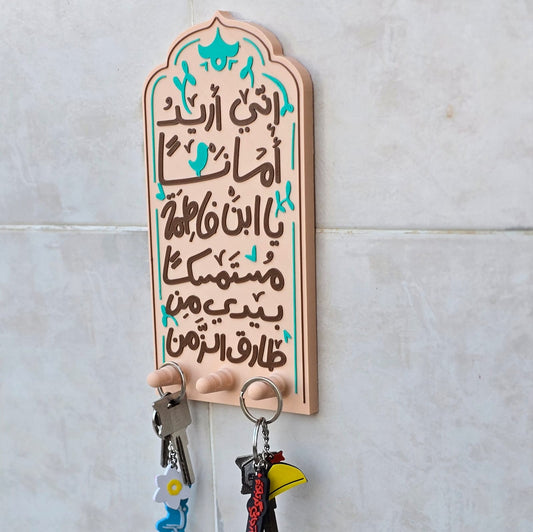 إنّي أريدُ
أمانًا
يا ابنَ فاطمة
مُستمسكًا
بيدي مِن
طارق الزّمن